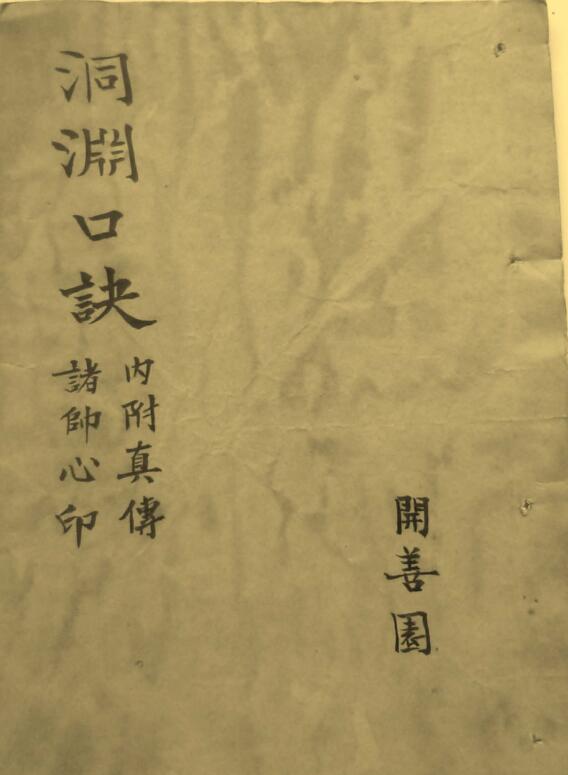 洞淵口訣
內附真傳
諸帥心印
開善園